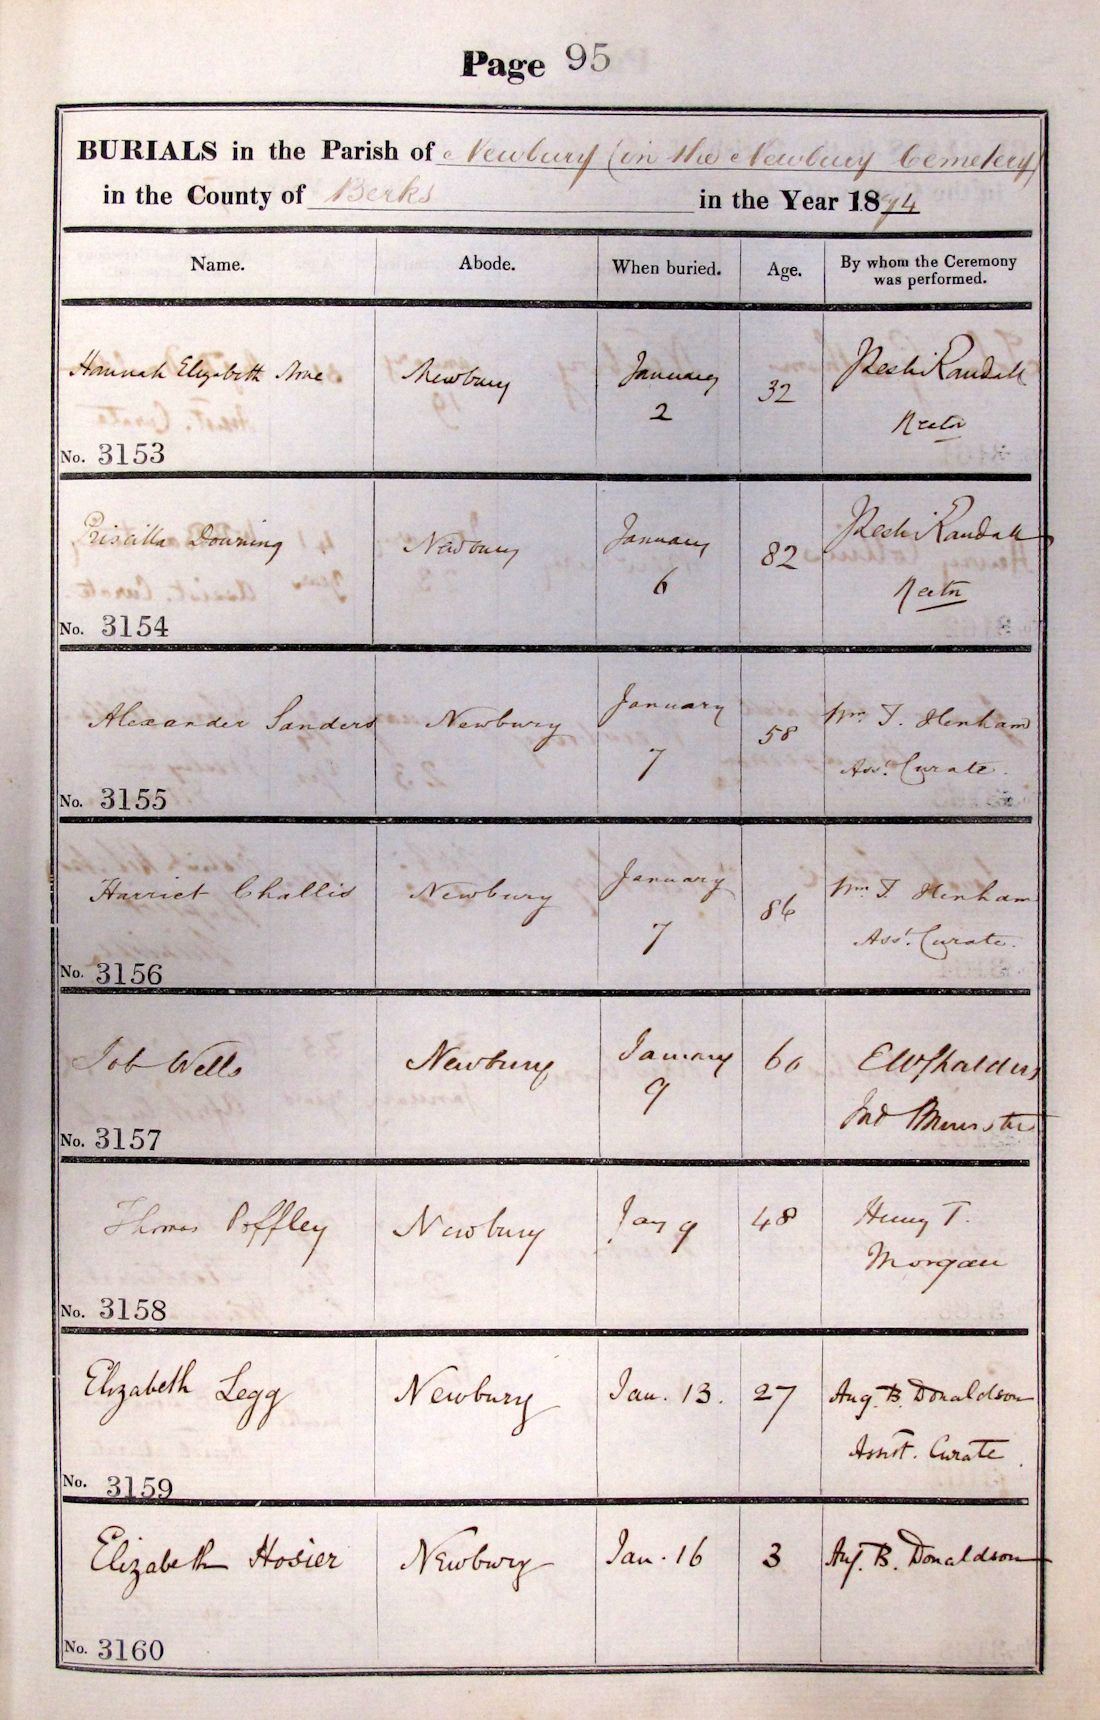 Page 95
BURIALS in the Parish of Newbury (in the Newbury Cemetery)
in the County of Berks in the Year 1874
Name. Abode. When buried. Age. By whom the Ceremony was performed.
Hannah Elizabeth Newbury January 2 32 Randall
Rector
No. 3153
Priscilla Downing Newbury January 6 82 Randall
Rector
No. 3154
Alexander Sanders Newbury January 7 58 Wm. F. Henham
Asst. Curate.
No. 3155
Harriet Challis Newbury January 7 86 Wm. F. Henham
Asst. Curate.
No. 3156
Job Wells Newbury January 9 60 E W Shalders
Ind Minister
No. 3157
Thomas Poffley Newbury Jany 9 48 Henry T.
Morgan
No. 3158
Elizabeth Legg Newbury Jan. 13. 27 Aug. B. Donaldson
Assist. Curate
No. 3159
Elizabeth Hosier Newbury Jan. 16 3 Aug. B. Donaldson
No. 3160